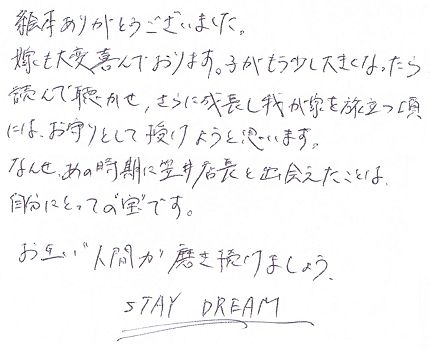 絵本ありがとうございました。
嫁も大変喜んでおります。子がもう少し大きくなったら
読んで聴かせ、さらに成長し我が家を旅立つ頃
には、お守りとして授けようと思います。
なんせ、あの時期に笠井店長と出会えたことは、
自分にとっての"宝"です。
お互い"人間力"磨き続けましょう。
STAY DREAM